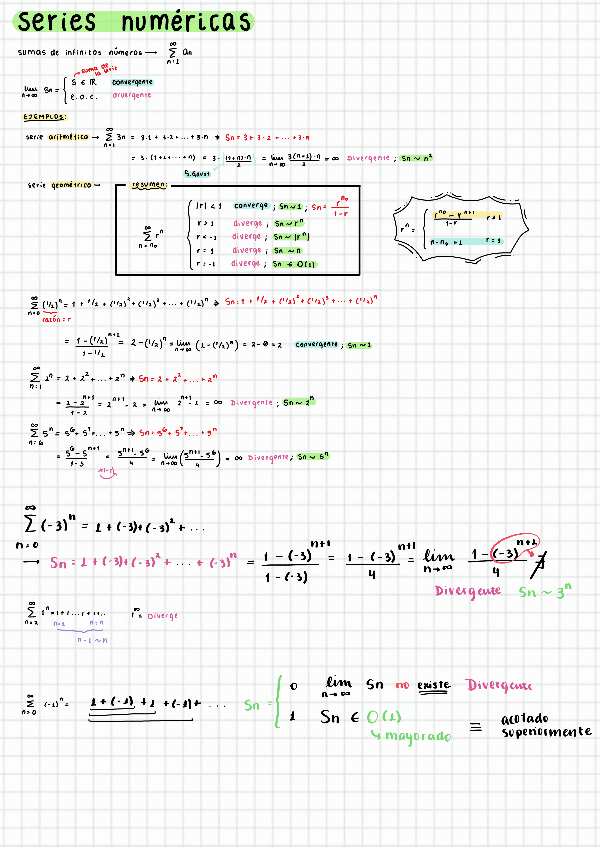 series numéricas
sumas de infinitos números → ∑_{n=1}^{∞} an
suma de la serie
lim_{n→∞} Sn = { S ∈ ℝ convergente
e.o.c. divergente
EJEMPLOS:
serie aritmética → ∑_{n=1}^{∞} 3n = 3·1 + 3·2 + ... + 3·n → Sn = 3 + 3·2 + ... + 3·n
= 3·(1+2+...+n) = 3·(1+n)·n/2 = lim_{n→∞} 3(n+1)·n/2 = ∞ Divergente ; Sn ~ n²
S.Gauss
serie geométrica → resumen:
∑_{n=n₀}^{∞} rⁿ { |r| < 1 converge ; Sn ~ 1 ; Sn = r^{n₀}/(1-r)
r > 1 diverge ; Sn ~ rⁿ
r < -1 diverge ; Sn ~ |rⁿ|
r = 1 diverge ; Sn ~ n
r = -1 diverge ; Sn ∈ O(1)
rⁿ = { (r^{n₀} - r^{n+1})/(1-r) r ≠ 1
n - n₀ + 1 r = 1
∑_{n=0}^{∞} (1/2)ⁿ = 1 + 1/2 + (1/2)² + (1/2)³ + ... + (1/2)ⁿ → Sn = 1 + 1/2 + (1/2)² + (1/2)³ + ... + (1/2)ⁿ
razón = r
= (1 - (1/2)^{n+1})/(1 - 1/2) = 2 - (1/2)ⁿ = lim_{n→∞} (2 - (1/2)ⁿ) = 2 - 0 = 2 convergente ; Sn ~ 1
∑_{n=1}^{∞} 2ⁿ = 2 + 2² + ... + 2ⁿ → Sn = 2 + 2² + ... + 2ⁿ
= (2 - 2^{n+1})/(1-2) = 2^{n+1} - 2 = lim_{n→∞} 2^{n+1} - 2 = ∞ Divergente ; Sn ~ 2ⁿ
∑_{n=6}^{∞} 5ⁿ = 5⁶ + 5⁷ + ... + 5ⁿ → Sn = 5⁶ + 5⁷ + ... + 5ⁿ
= (5⁶ - 5^{n+1})/(1-5) = (5^{n+1} - 5⁶)/4 = lim_{n→∞} (5^{n+1} - 5⁶)/4 = ∞ Divergente ; Sn ~ 5ⁿ
x(-1)
∑_{n=0}^{∞} (-3)ⁿ = 1 + (-3) + (-3)² + ...
→ Sn = 1 + (-3) + (-3)² + ... + (-3)ⁿ = (1 - (-3)^{n+1})/(1 - (-3)) = (1 - (-3)^{n+1})/4 = lim_{n→∞} (1 - (-3)^{n+1})/4 ∄
Divergente Sn ~ 3ⁿ
∑_{n=2}^{∞} 1ⁿ = 1 + 1 + ... + 1 + 1.. Diverge
n - 1 ~ n
∑_{n=0}^{∞} (-1)ⁿ = 1 + (-1) + 1 + (-1) + ... Sn = { 0 lim_{n→∞} Sn no existe Divergente
1 Sn ∈ O(1) ≡ acotado superiormente
↳ mayorado